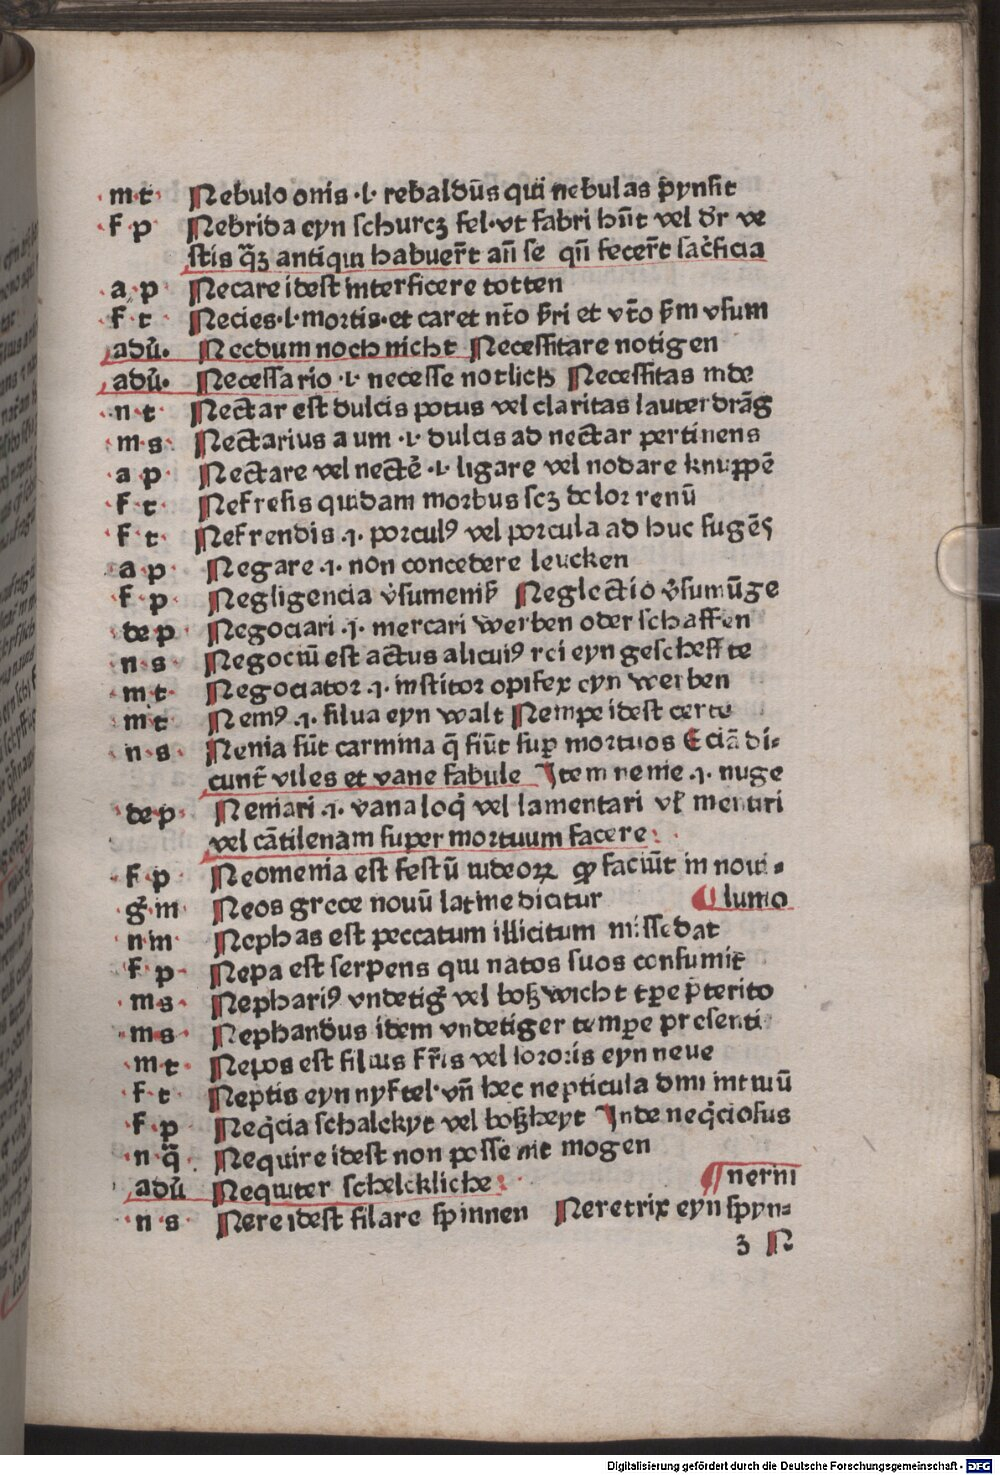 ·m·t· Nebulo onis ·l· rebaldūs qui nebulas p̄ynsit
·f·p· Nebrida eyn schurcꝫ fel·vt fabri hn̄t vel dr̄ ve
stis q̄ꝫ antiqui habuer̄t an̄ se qn̄ fecer̄t sac̄ficia
·a·p· Necare idest interficere totten
·f·t· Necies·l·mortis·et caret nt̄o p̄ri et vt̄o p̄m vsum
adū· Necdum noch nicht Necessitare notigen
adū· Necessario ·l· necesse notlich Necessitas inde
·n·t· Nectar est dulcis potus vel claritas lauterdrāg
·m·s· Nectarius a um ·l· dulcis ad nectar pertinens
·a·p· Nectare vel nectē ·l· ligare vel nodare knuppē
·f·t· Nefresis quidam morbus scꝫ dolor renū
·f·t· Nefrendis ·ı· porculꝰ vel porcula ad huc sugēs
·a·p· Negare ·ı· non concedere leucken
·f·p· Negligencia v̄sumeniß Neglectio v̄sumūge
de p· Negociari ·ı· mercari werben oder schaffen
·n·s· Negociū est actus alicuiꝰ rei eyn gescheffte
·m·t· Negociator ·ı· institor opifex eyn werben
·m·t· Nemꝰ ·ı· silua eyn walt Nempe idest certe
·n·s· Nenia sūt carmina q̄ fiūt suꝑ mortuos Eciā di-
cunt̄ viles et vane fabule Item nenie ·ı· nuge
·de·p· Neniari ·ı· vana loq̄ vel lamentari vł mentiri
vel cātilenam super mortuum facere:
·f·p· Neomenia est festū iudeoꝝ ꝙ faciūt in noui-
·ḡ·m Neos grece nouū latine dicitur ¶ lumo
·n·m· Nephas est peccatum illicitum missedat
·f·p· Nepa est serpens qui natos suos consumit
·m·s· Nephariꝰ vndetiḡ vel boßwicht tꝑe p̄terito
·m·s· Nephandus idem vndetiger tempꝑe presenti
·m·t· Nepos est filius fr̄is vel sororis eyn neue
·f·t· Neptis eyn nyftel·vn̄ hec nepticula dimintiuū
·f·p· Neq̄cia schalckyt vel boßheyt Inde neq̄ciosus
·n·q̄· Nequire idest non posse nit mogen
adū Nequiter schelckliche: ¶ nerin
·n·s· Nere idest filare spinnen Neretrix eyn spyn-
ꝫ N
Digitalisierung gefördert durch die Deutsche Forschungsgemeinschaft - DFG